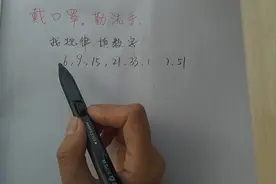 戴口罩，勤洗手，
找规律 填数字
6，9，15，21，33，(　)，51